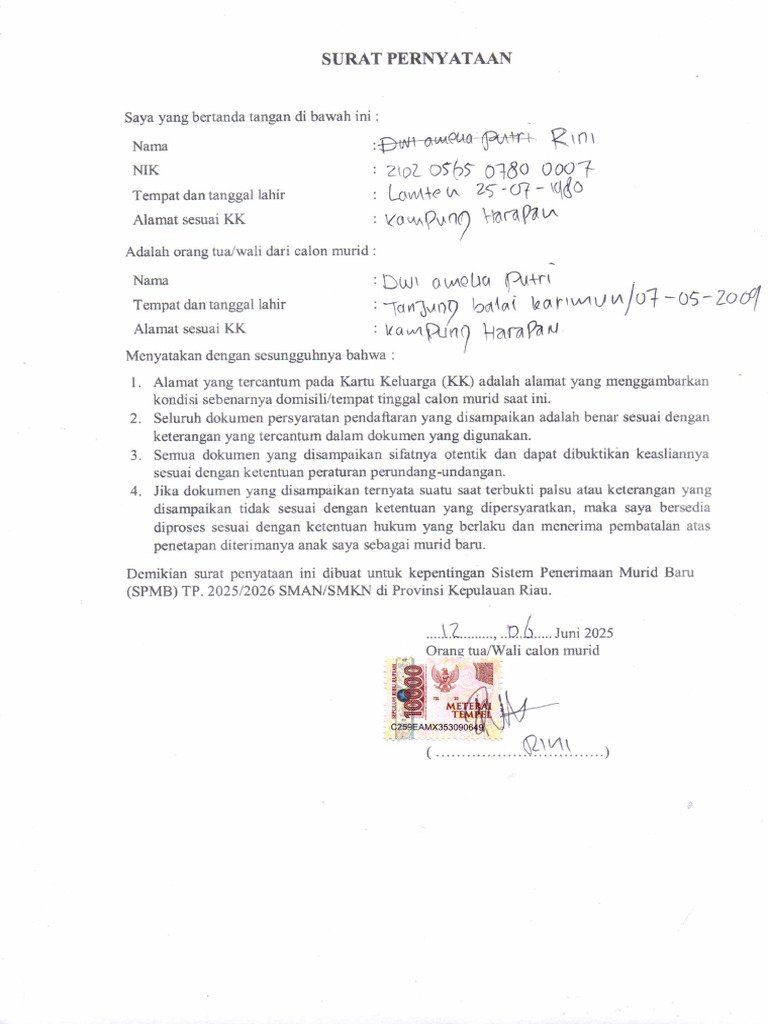 SURAT PERNYATAAN
Saya yang bertanda tangan di bawah ini :
Nama : Dwi amelia putri Rini
NIK : 2102 0565 0780 0007
Tempat dan tanggal lahir : Lamten 25-07-1980
Alamat sesuai KK : Kampung Harapan
Adalah orang tua/wali dari calon murid :
Nama : Dwi amelia Putri
Tempat dan tanggal lahir : Tanjung balai karimun/07-05-2009
Alamat sesuai KK : Kampung Harapan
Menyatakan dengan sesungguhnya bahwa :
1. Alamat yang tercantum pada Kartu Keluarga (KK) adalah alamat yang menggambarkan
kondisi sebenarnya domisili/tempat tinggal calon murid saat ini.
2. Seluruh dokumen persyaratan pendaftaran yang disampaikan adalah benar sesuai dengan
keterangan yang tercantum dalam dokumen yang digunakan.
3. Semua dokumen yang disampaikan sifatnya otentik dan dapat dibuktikan keasliannya
sesuai dengan ketentuan peraturan perundang-undangan.
4. Jika dokumen yang disampaikan ternyata suatu saat terbukti palsu atau keterangan yang
disampaikan tidak sesuai dengan ketentuan yang dipersyaratkan, maka saya bersedia
diproses sesuai dengan ketentuan hukum yang berlaku dan menerima pembatalan atas
penetapan diterimanya anak saya sebagai murid baru.
Demikian surat penyataan ini dibuat untuk kepentingan Sistem Penerimaan Murid Baru
(SPMB) TP. 2025/2026 SMAN/SMKN di Provinsi Kepulauan Riau.
....12.........., ..06..... Juni 2025
Orang tua/Wali calon murid
SEPULUH RIBU RUPIAH
10000
METERAI
TEMPEL
C259EAMX353090649
(................RINI................)